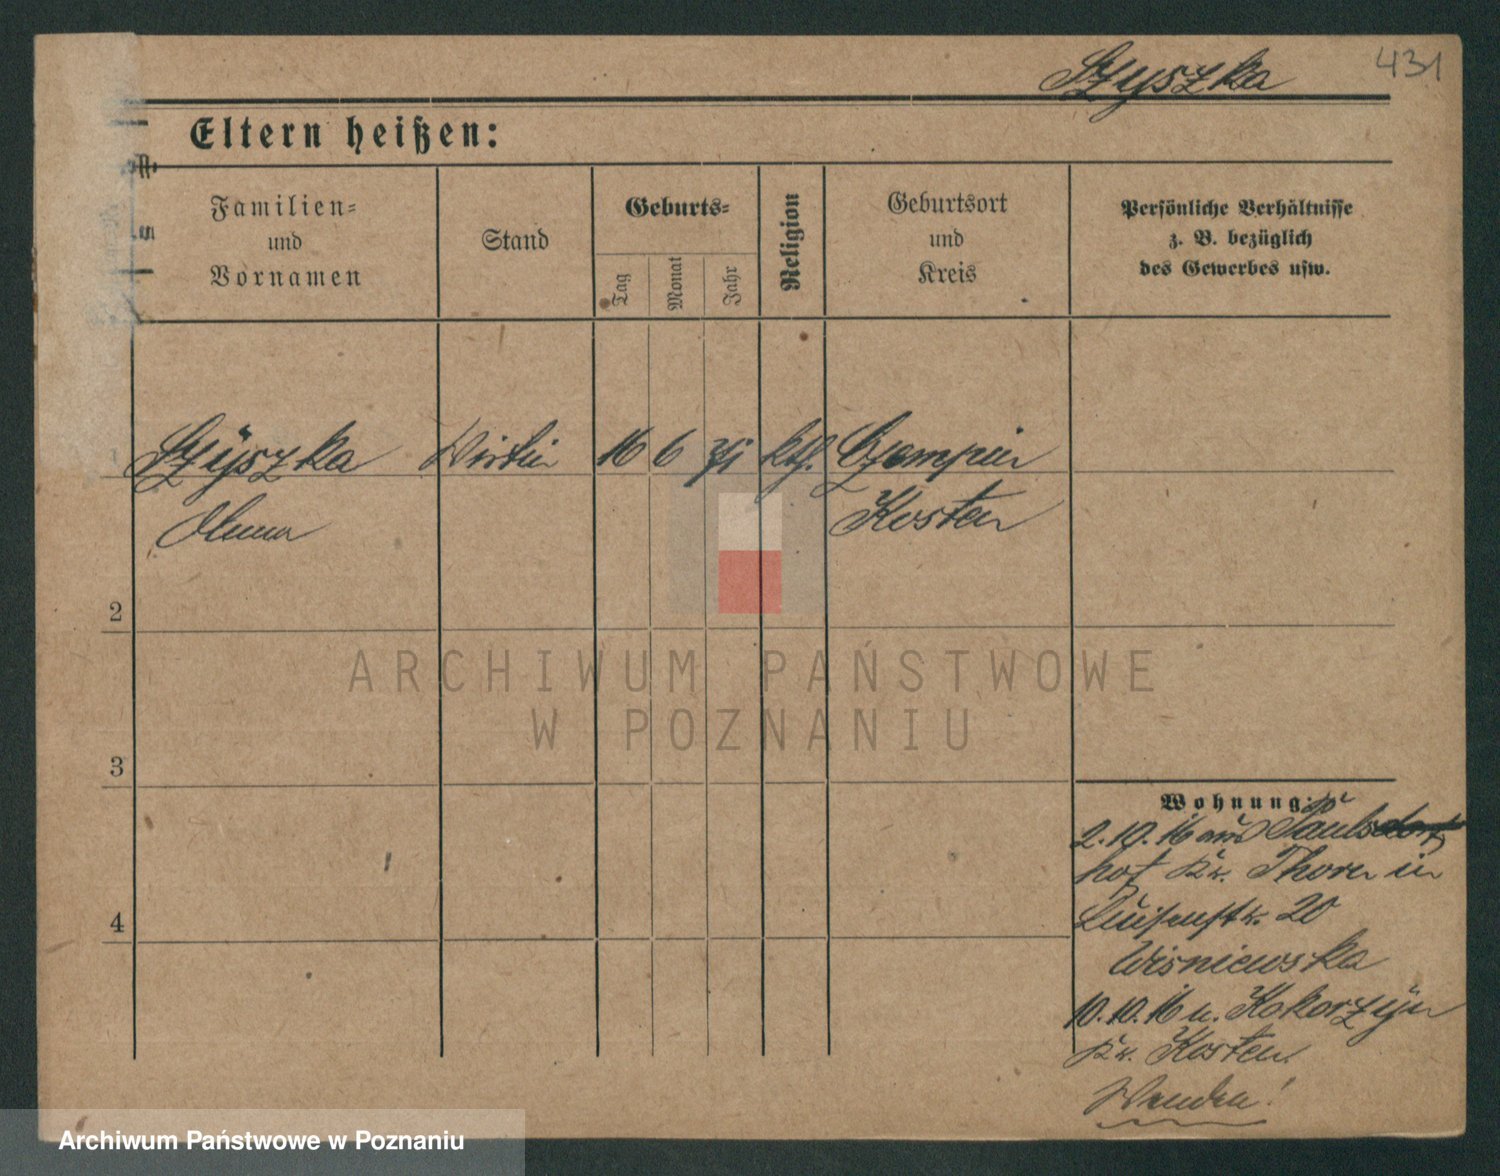 Szyszka
431
Eltern heißen:
Familien-
und
Vornamen
Stand
Geburts-
Tag
Monat
Jahr
Religion
Geburtsort
und
Kreis
Persönliche Verhältnisse
z. B. bezüglich
des Gewerbes usw.
1
Szyszka Wirtin 16 6 kth. Czempin
Kosten
2
3
4
Wohnung:
2.10.16 aus Paulsdorf
hof Kr. Thorn in
Luisenstr. 20
Wisniewska
10.10.16 n. Kokorzyn
Kr. Kosten.
Wenden!
ARCHIWUM PAŃSTWOWE
W POZNANIU
Archiwum Państwowe w Poznaniu